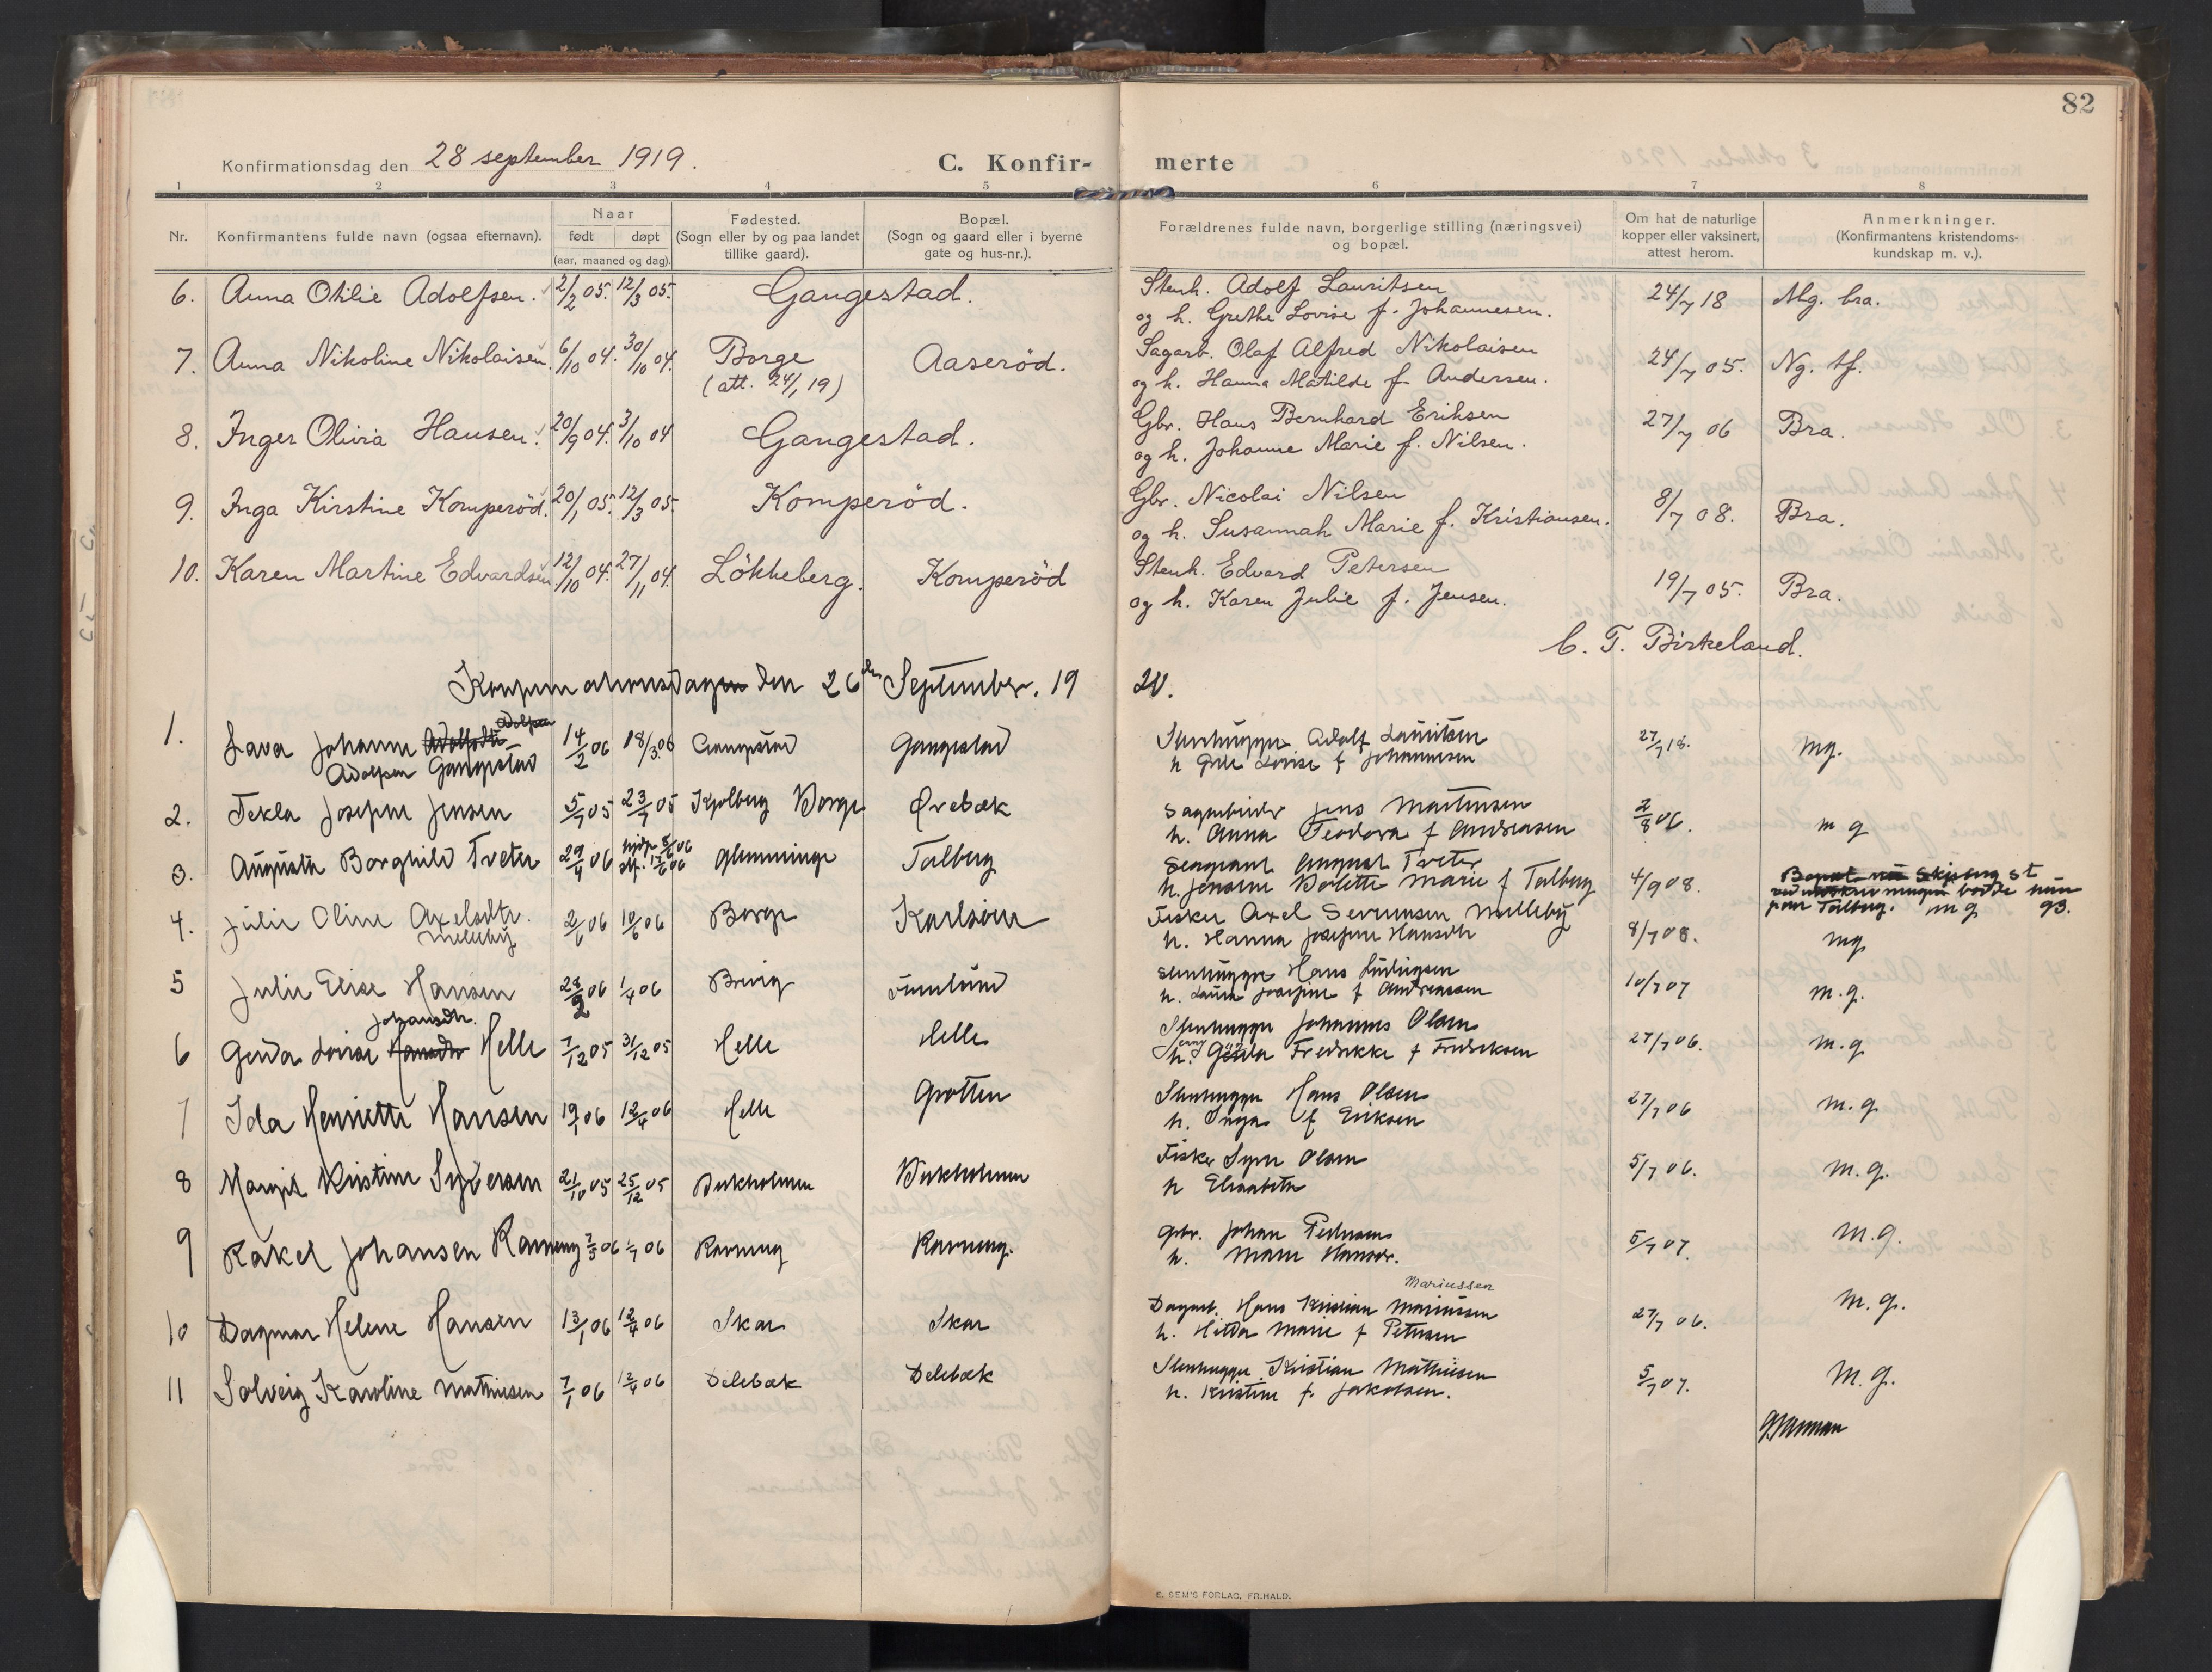 82
Konfirmationsdag den 28 september 1919.
C. Konfir-
merte
1 2 3 4 5 6 7 8
Nr.
Konfirmantens fulde navn (ogsaa efternavn).
Naar
født døpt
(aar, maaned og dag).
Fødested.
(Sogn eller by og paa landet
tillike gaard).
Bopæl.
(Sogn og gaard eller i byerne
gate og hus-nr.).
Forældrenes fulde navn, borgerlige stilling (næringsvei)
og bopæl.
Om hat de naturlige
kopper eller vaksinert,
attest herom.
Anmerkninger.
(Konfirmantens kristendoms-
kundskap m. v.).
6. Anna Otilie Adolfsen. 2/2 05. 12/3 05. Gangestad. Stenh. Adolf Lauritsen 24/7 18 Mg. bra.
og h. Grethe Lovise f. Johannesen.
7. Anna Nikoline Nikolaisen 6/10 04. 30/10 04. Borge Aaseröd. Sagarb. Olaf Alfred Nikolaisen 24/7 05. Ng. tf.
(att. 24/1 19) og h. Hanna Matilde f. Andersen.
8. Inger Olivia Hansen. 20/9 04. 3/10 04 Gangestad. Gbr. Hans Bernhard Eriksen 27/7 06 Bra.
og h. Johanne Marie f. Nilsen.
9. Inga Kirstine Komperöd. 20/1 05. 12/3 05. Komperöd. Gbr. Nicolai Nilsen 8/7 08. Bra.
og h. Susannah Marie f. Kristiansen.
10. Karen Martine Edvardsen 12/10 04. 27/11 04. Lökkeberg. Komperöd Stenh. Edvard Petersen 19/7 05. Bra.
og h. Karen Julie f. Jensen.
C. T. Birkeland.
Konfirmationsdagen den 26de September. 19 20.
Adolfsen
1. Lava Johanne Adolfsdtr 14/2 06 18/3 06 Gangestad Gangestad Stenhugger Adolf Lauritsen 27/7 18. mg.
Adolfsen Gangestad h Grete Lovise f Johannesen
2. Tekla Josefine Jensen 5/7 05 23/7 05 Kjølberg Borge Ørebæk Sagarbeider Jens Martinsen 2/8 06. m g
h. Anna Teodora f Andreasen
3. Augusta Borghild Tveter 29/4 06 Glemminge Talberg Sergeant August Tveter 4/9 08.
h. Jensine Bolette Marie f Talberg
Skjeberg st
bodde hun
paa Talberg. m g 93.
4. Julie Oline Axelsdtr. 2/6 06 10/6 06 Borge Karlsöen Fisker Axel Severinsen Melleby 8/7 08. mg
Melleby h. Hanna Josefine Hansdtr
5 Julie Elise Hansen 28/2 06 1/4 06 Brevig Stenhugger Hans Ludvigsen 10/7 07 m.g.
h. Laura Josefine f Andreassen
Johansdtr.
6 Gerda Lovise Hansdtr Helle 7/12 05 31/12 05 Helle Helle Stenhugger Johannes Olsen 27/7 06. m.g
h. Fredrikke f Fredriksen
7 Ida Henriette Hansen 19/1 06 12/4 06 Helle Grotten Stenhugger Hans Olsen 27/7 06 m.g
h. Inga f Eriksen
8 Margit Kristine Syversen 21/10 05 25/12 05 Birkholmen Birkholmen Fisker Syver Olsen 5/7 06. m.g.
h Elisabeth
9 Rakel Johansen Ramneng 7/5 06 1/7 06 Gbr. Johan Pedersen 5/7 07. m.g.
h. Marie Hansdr.
Mariussen
10 Dagmar Helene Hansen 13/1 06 12/4 06 Skar Skar Dagarb. Hans Kristian Mariussen 27/7 06. m.g.
h. Hilda Marie f Petersen
11 Solveig Karoline Mathiesen 7/1 06 12/4 06 Delebæk Delebæk Stenhugger Kristian Mathiesen 5/7 07. m.g.
h. Kristine f. Jakobsen.
E. SEM'S FORLAG, FR.HALD.